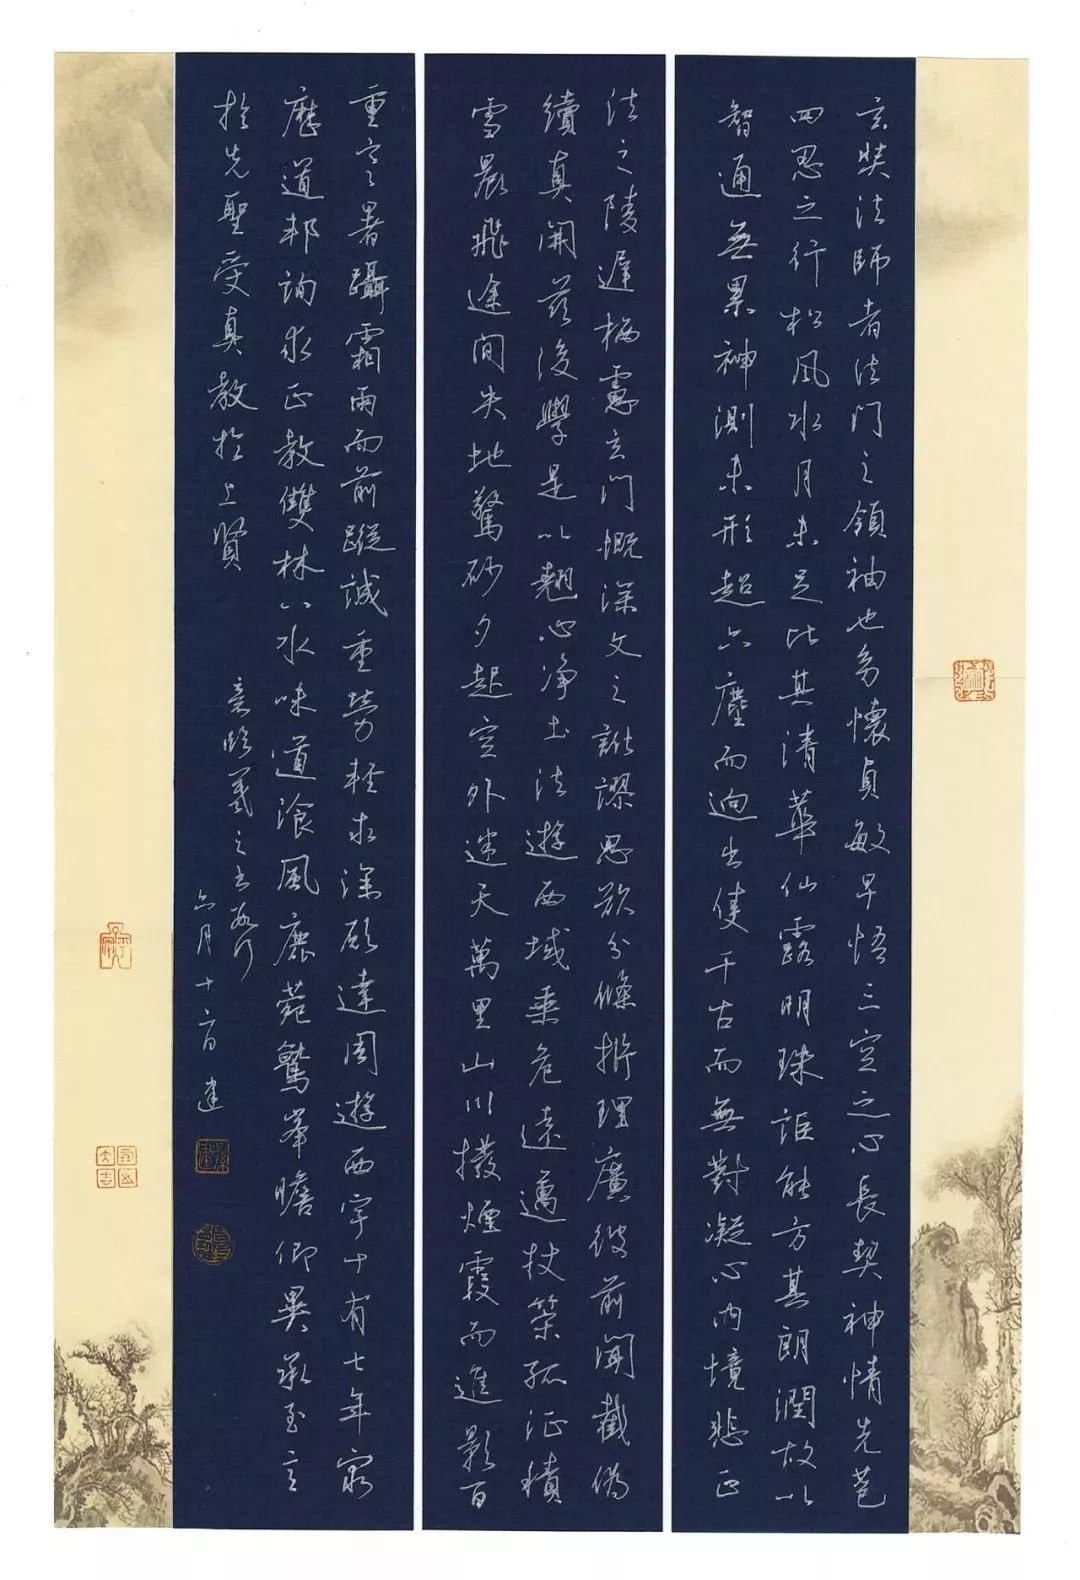 玄奘法師者法門之領袖也幼懷貞敏早悟三空之心長契神情先苞
四忍之行松風水月未足比其清華仙露明珠詎能方其朗潤故以
智通無累神測未形超六塵而迥出隻千古而無對凝心內境悲正
法之陵遲栖慮玄門慨深文之訛謬思欲分條析理廣彼前聞截偽
續真開茲後學是以翹心淨土法遊西域乘危遠邁杖策孤征積
雪晨飛途間失地驚砂夕起空外迷天萬里山川撥煙霞而進影百
重寒暑躡霜雨而前蹤誠重勞輕求深願達周遊西宇十有七年窮
歷道邦詢求正教雙林八水味道飡風鹿菀鷲峯瞻仰異承至言
於先聖受真教於上賢
意臨羲之書數行
六月十日建